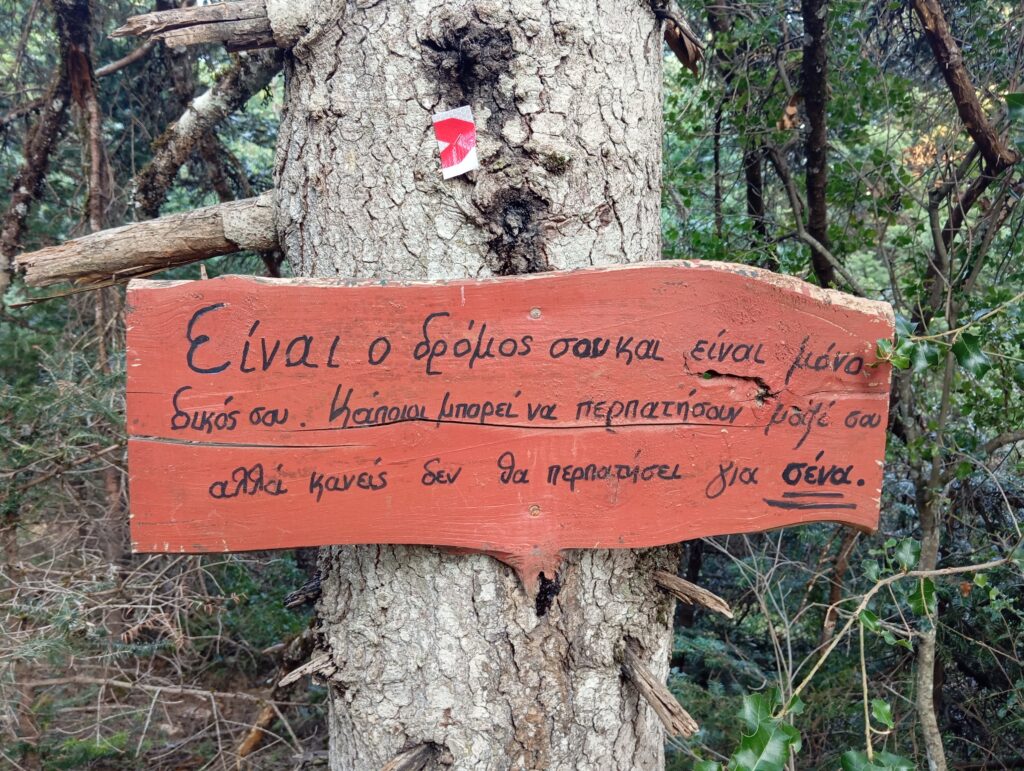 Είναι ο δρόμος σου και είναι μόνο
δικός σου. Κάποιοι μπορεί να περπατήσουν μαζί σου
αλλά κανείς δεν θα περπατήσει για σένα.